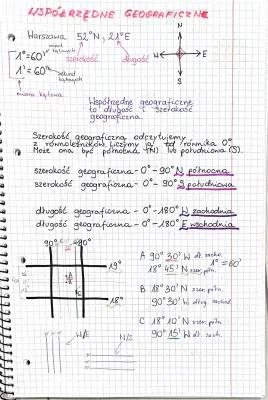 WSPÓŁRZĘDNE GEOGRAFICZNE
Warszawa 52°N, 21°E
szerokość długość
N
W E
S
minut kątowych
1° = 60'
1' = 60"
sekund kątowych
miara kątowa
Współrzędne geograficzne
to długość i szerokość
geograficzna
Szerokość geograficzną odczytujemy
z równoleżników liczymy ją od równika 0°
Może ona być północna (N) lub południowa (S).
szerokość geograficzna - 0° - 90° N północna
szerokość geograficzna - 0° - 90° S południowa
długość geograficzna - 0° - 180° W zachodnia
długość geograficzna - 0° - 180° E wschodnia
90° 90°
19°
18°
C
W/E
N/S
A 90° 30' W dł. zach.
1° = 60'
18° 45' N szer. półn.
B 18° 30' N szer. półn.
90° 30' W dług. zachod.
C 18° 10' N szer. półn.
90° 15' W dł. zach.